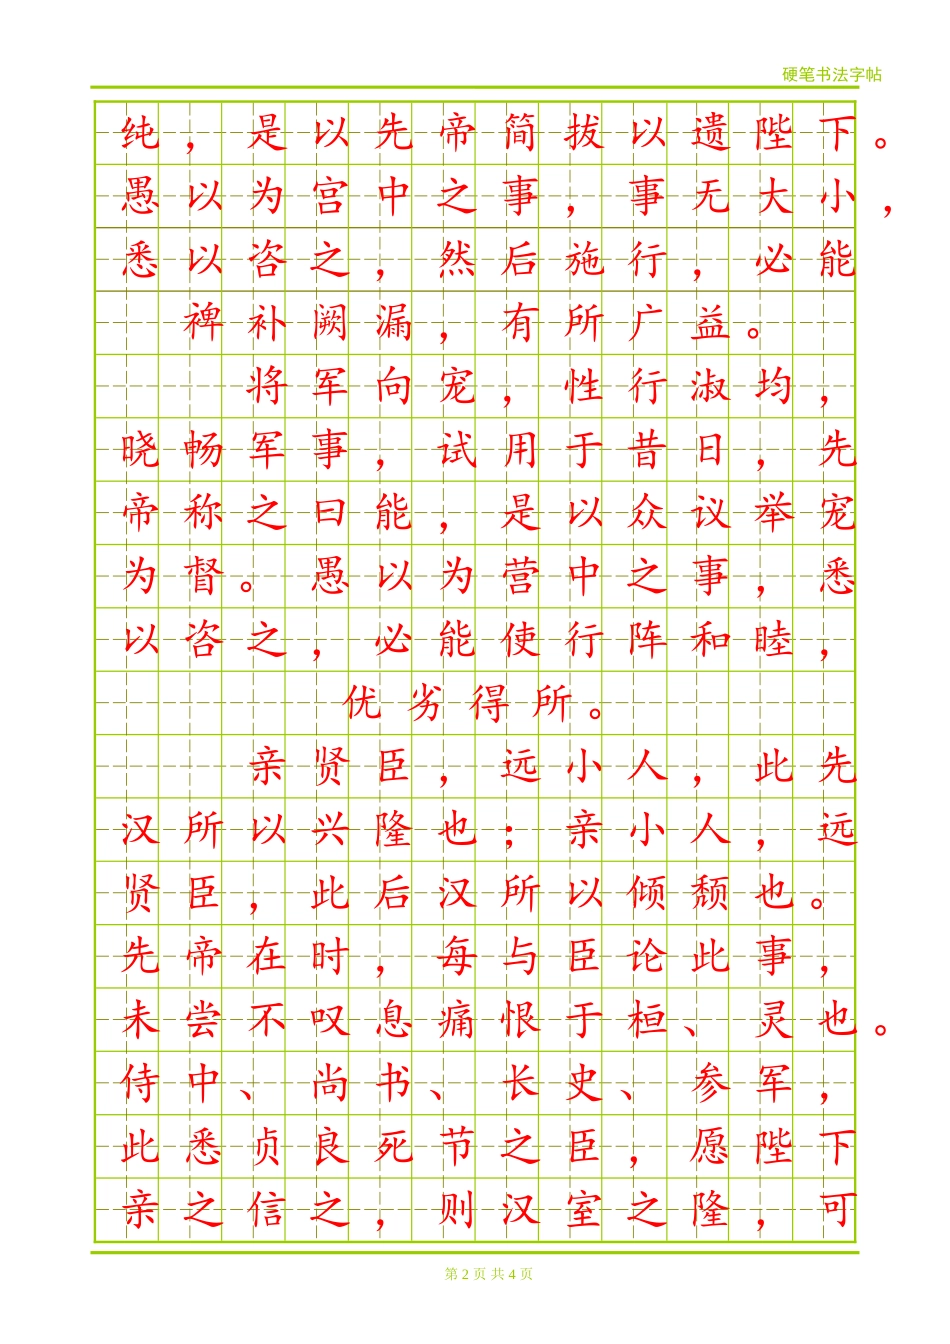 硬笔书法字帖
纯，是以先帝简拔以遗陛下。
愚以为宫中之事，事无大小，
悉以咨之，然后施行，必能
裨补阙漏，有所广益。
将军向宠，性行淑均，
晓畅军事，试用于昔日，先
帝称之曰能，是以众议举宠
为督。愚以为营中之事，悉
以咨之，必能使行阵和睦，
优劣得所。
亲贤臣，远小人，此先
汉所以兴隆也；亲小人，远
贤臣，此后汉所以倾颓也。
先帝在时，每与臣论此事，
未尝不叹息痛恨于桓、灵也。
侍中、尚书、长史、参军，
此悉贞良死节之臣，愿陛下
亲之信之，则汉室之隆，可
第 2 页 共 4 页